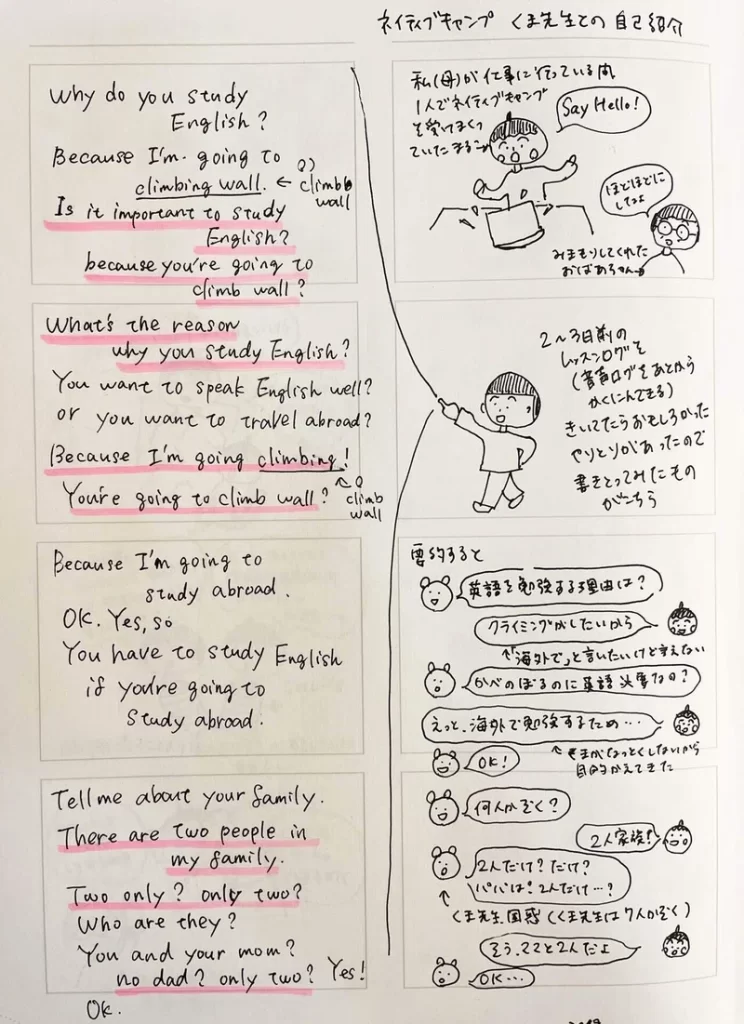 ネイティブキャンプ くま先生との自己紹介
Why do you study
English?
Because I'm going to
climbing wall. ← climb
wall
Is it important to study
English?
because you're going to
climb wall?
What's the reason
why you study English?
You want to speak English well?
or you want to travel abroad?
Because I'm going climbing!
You're going to climb wall?
climb
wall
Because I'm going to
study abroad.
OK. Yes, so
You have to study English
if you're going to
study abroad.
Tell me about your family.
There are two people in
my family.
Two only? only two?
Who are they?
You and your mom?
no dad? only two? Yes!
Ok.
私(母)が仕事に行っている間
1人でネイティブキャンプ
を受けまくっ
ていたまる
Say Hello!
ほどほどに
してよ
みまもりしてくれた
おばあちゃん
2〜3日前の
レッスンログを
(音声ログをあとから
かくにんできる)
きいてたらおもしろかった
やりとりがあったので
書きとってみたもの
がこちら
要約すると
英語を勉強する理由は?
クライミングがしたいから
↑「海外で」と言いたいけど言えない
かべのぼるのに英語必要なの?
えっと、海外で勉強するため…
OK!
↑くまがなっとくしないから
目的かえてきた
何人かぞく?
2人家族!
2人だけ?だけ?
パパは!2人だけ…?
↑
くま先生困惑(くま先生は7人かぞく)
そう、ママと2人だよ
OK…